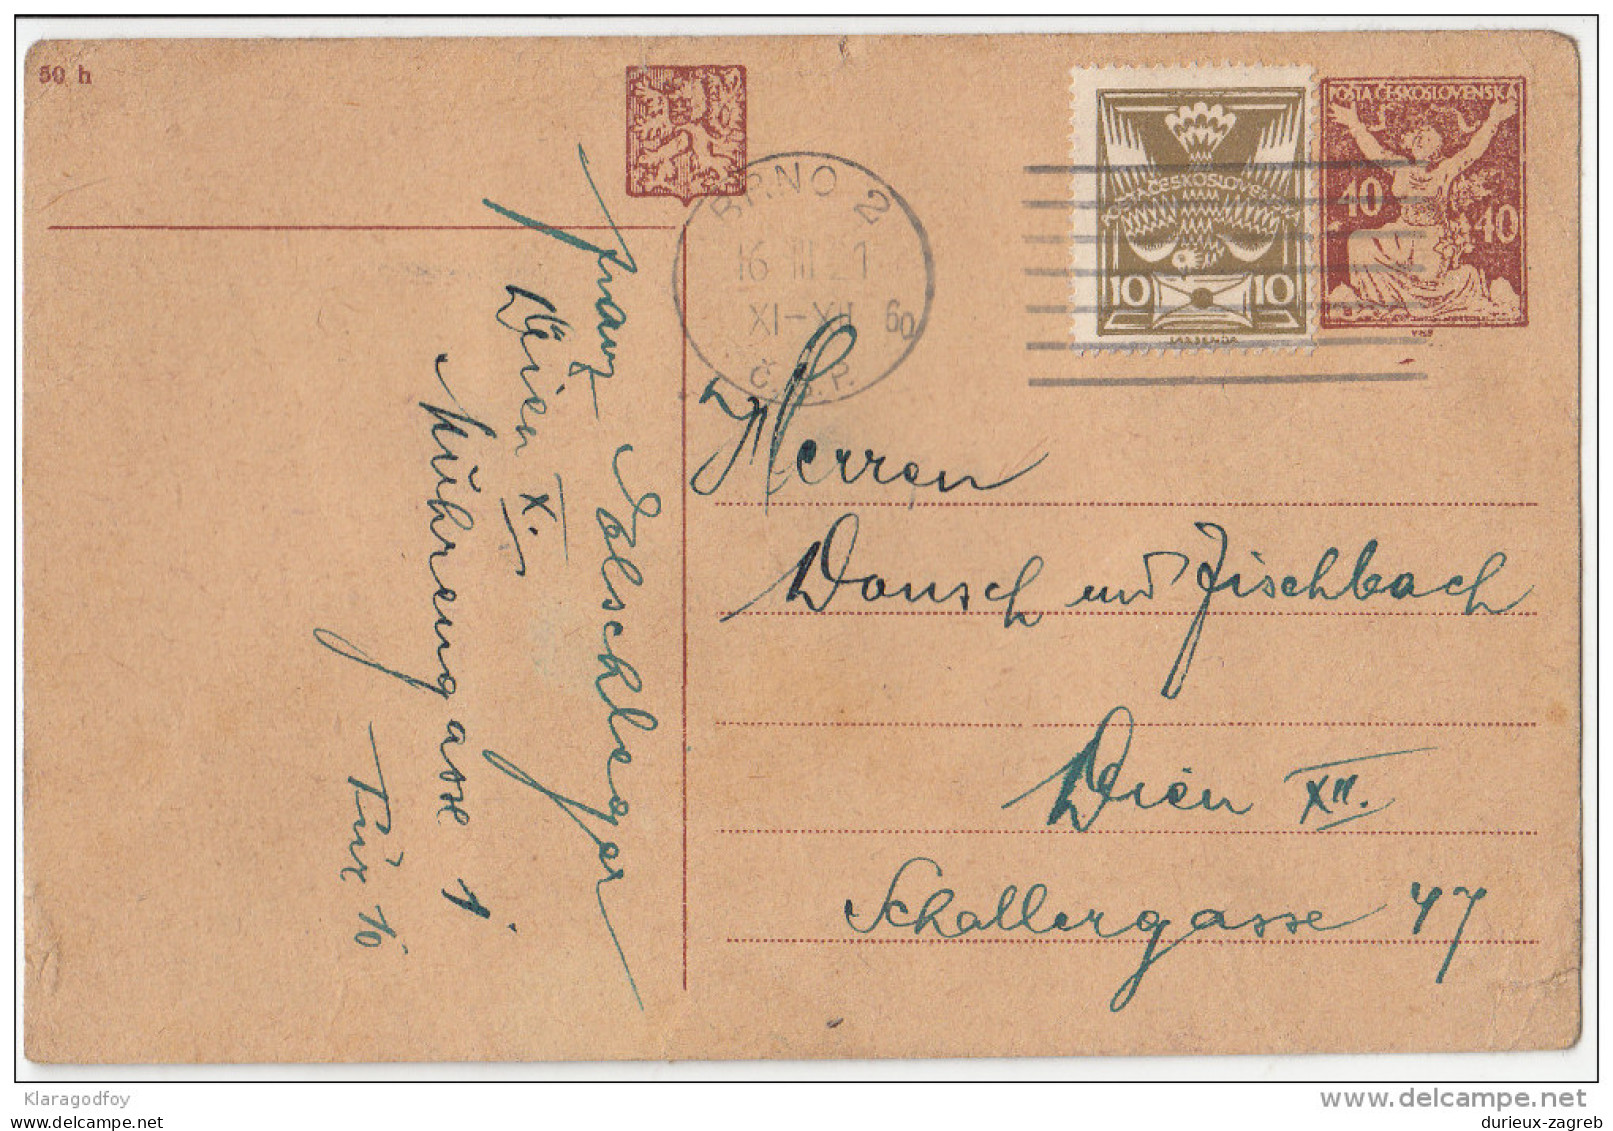 50 h
POŠTA ČESKOSLOVENSKÁ
40 40
POŠTA ČESKOSLOVENSKÁ
10 10
BRNO 2
16 III 21
XI-XII 60
Č.S.P.
Franz
Wien X.
Tür 16
Herren
und Fischbach
Wien XII.
Schallergasse 47
Klaragodfoy
www.delcampe.net
durieux-zagreb